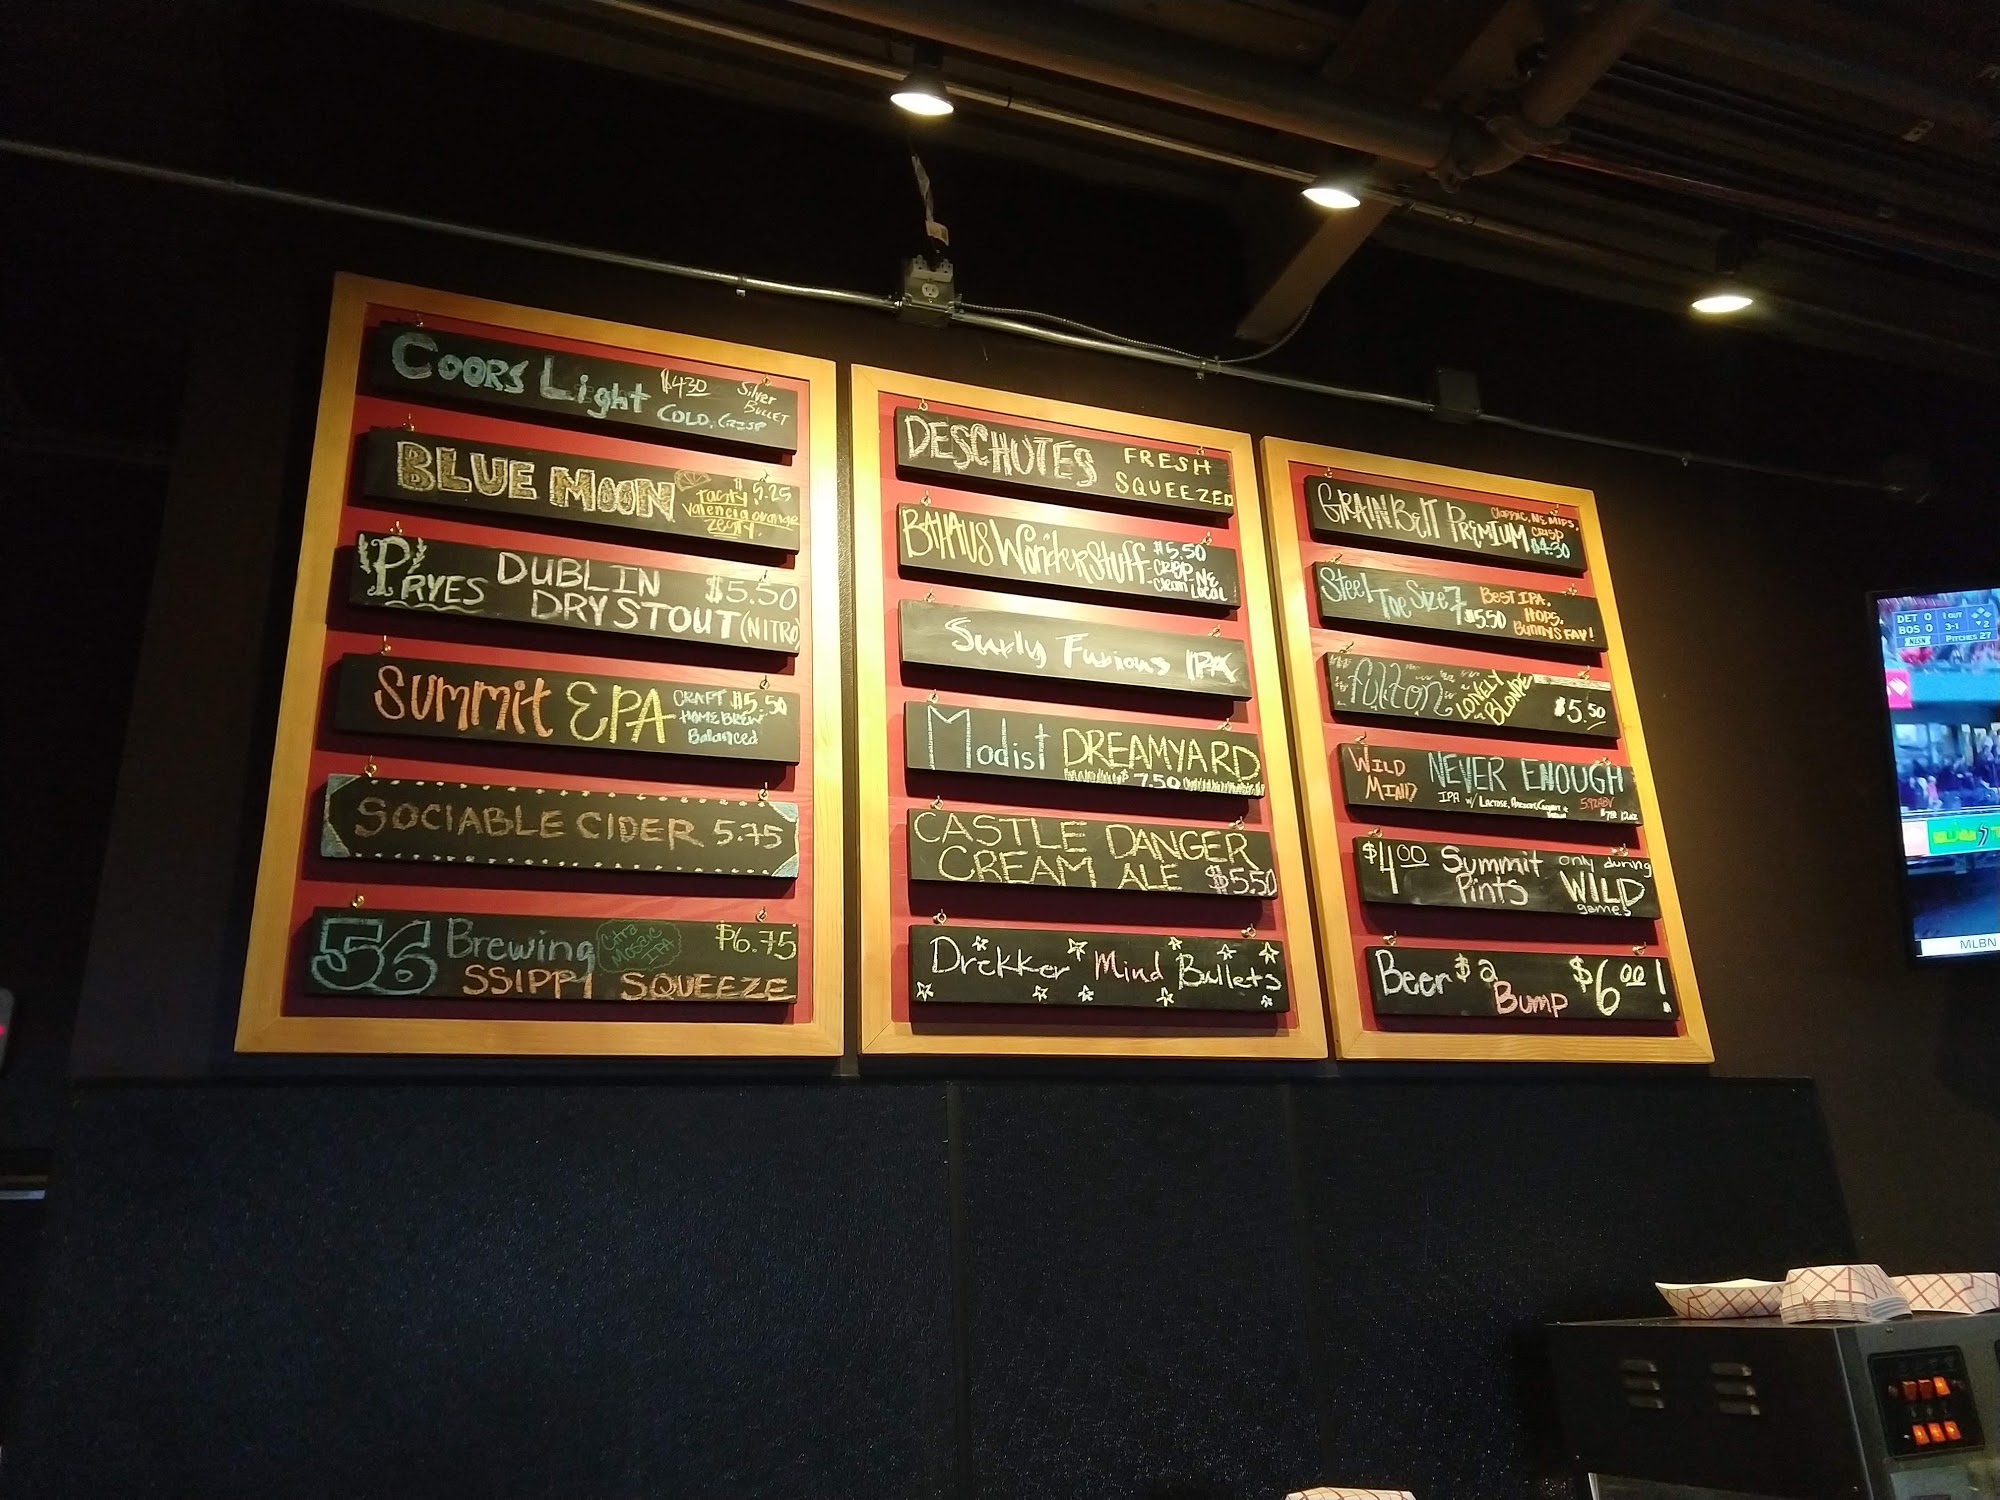 COORS Light $4.30 Silver BULLET
COLD, CRISP
BLUE MOON Tasty $5.25
Valencia orange
zesty.
PRYES DUBLIN $5.50
DRY STOUT (NITRO)
SUMMIT EPA CRAFT $5.50
HOMEBREW
Balanced
SOCIABLE CIDER 5.75
56 Brewing Citra Mosaic IPA $6.75
SSIPPI SQUEEZE
DESCHUTES FRESH
SQUEEZED
BAUHAUS WonderStuff $5.50
- CRISP - NE
- Clean - LOCAL
Surly Furious IPA
Modist DREAMYARD
7.50
CASTLE DANGER
CREAM ALE $5.50
Drekker Mind Bullets
GRAIN BELT PREMIUM CLASSIC, NE MPLS,
CRISP
$4.30
Steel Toe Size 7 BEST IPA,
$5.50 HOPS,
BUNNY'S FAV!
fulton LONELY
BLONDE $5.50
WILD MIND NEVER ENOUGH
IPA W/ LACTOSE, 5.9% ABV
$4.00 Summit Pints only during
WILD
games
Beer $ a Bump $6.00!
DET 0 1 OUT
BOS 0 3-1 2
PITCHES 27
MLBN